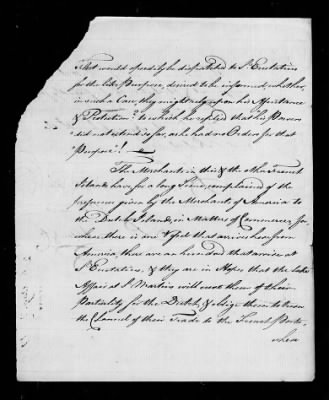 Fleet would speedily be dispatched to St Eustatius
for the like Purpose, desired to be informed, whether,
in such a Case, they might rely upon his Assistance
& Protection? to which he replied that his Powers
did not extend so far, as he had no Orders for that
Purpose!
The Merchants in this & the other French
Islands have for a long Time, complained of the
preference given by the Merchants of America to
the Dutch Islands, in Matters of Commerce, for
where there is one Vessel that arrives here from
America, there are an hundred that arrive at
St Eustatius, & they are in Hopes that the late
Affair at St Martins will cure them of their
Partiality for the Dutch, & oblige them to turn
the Channel of their Trade to the French Ports,
when